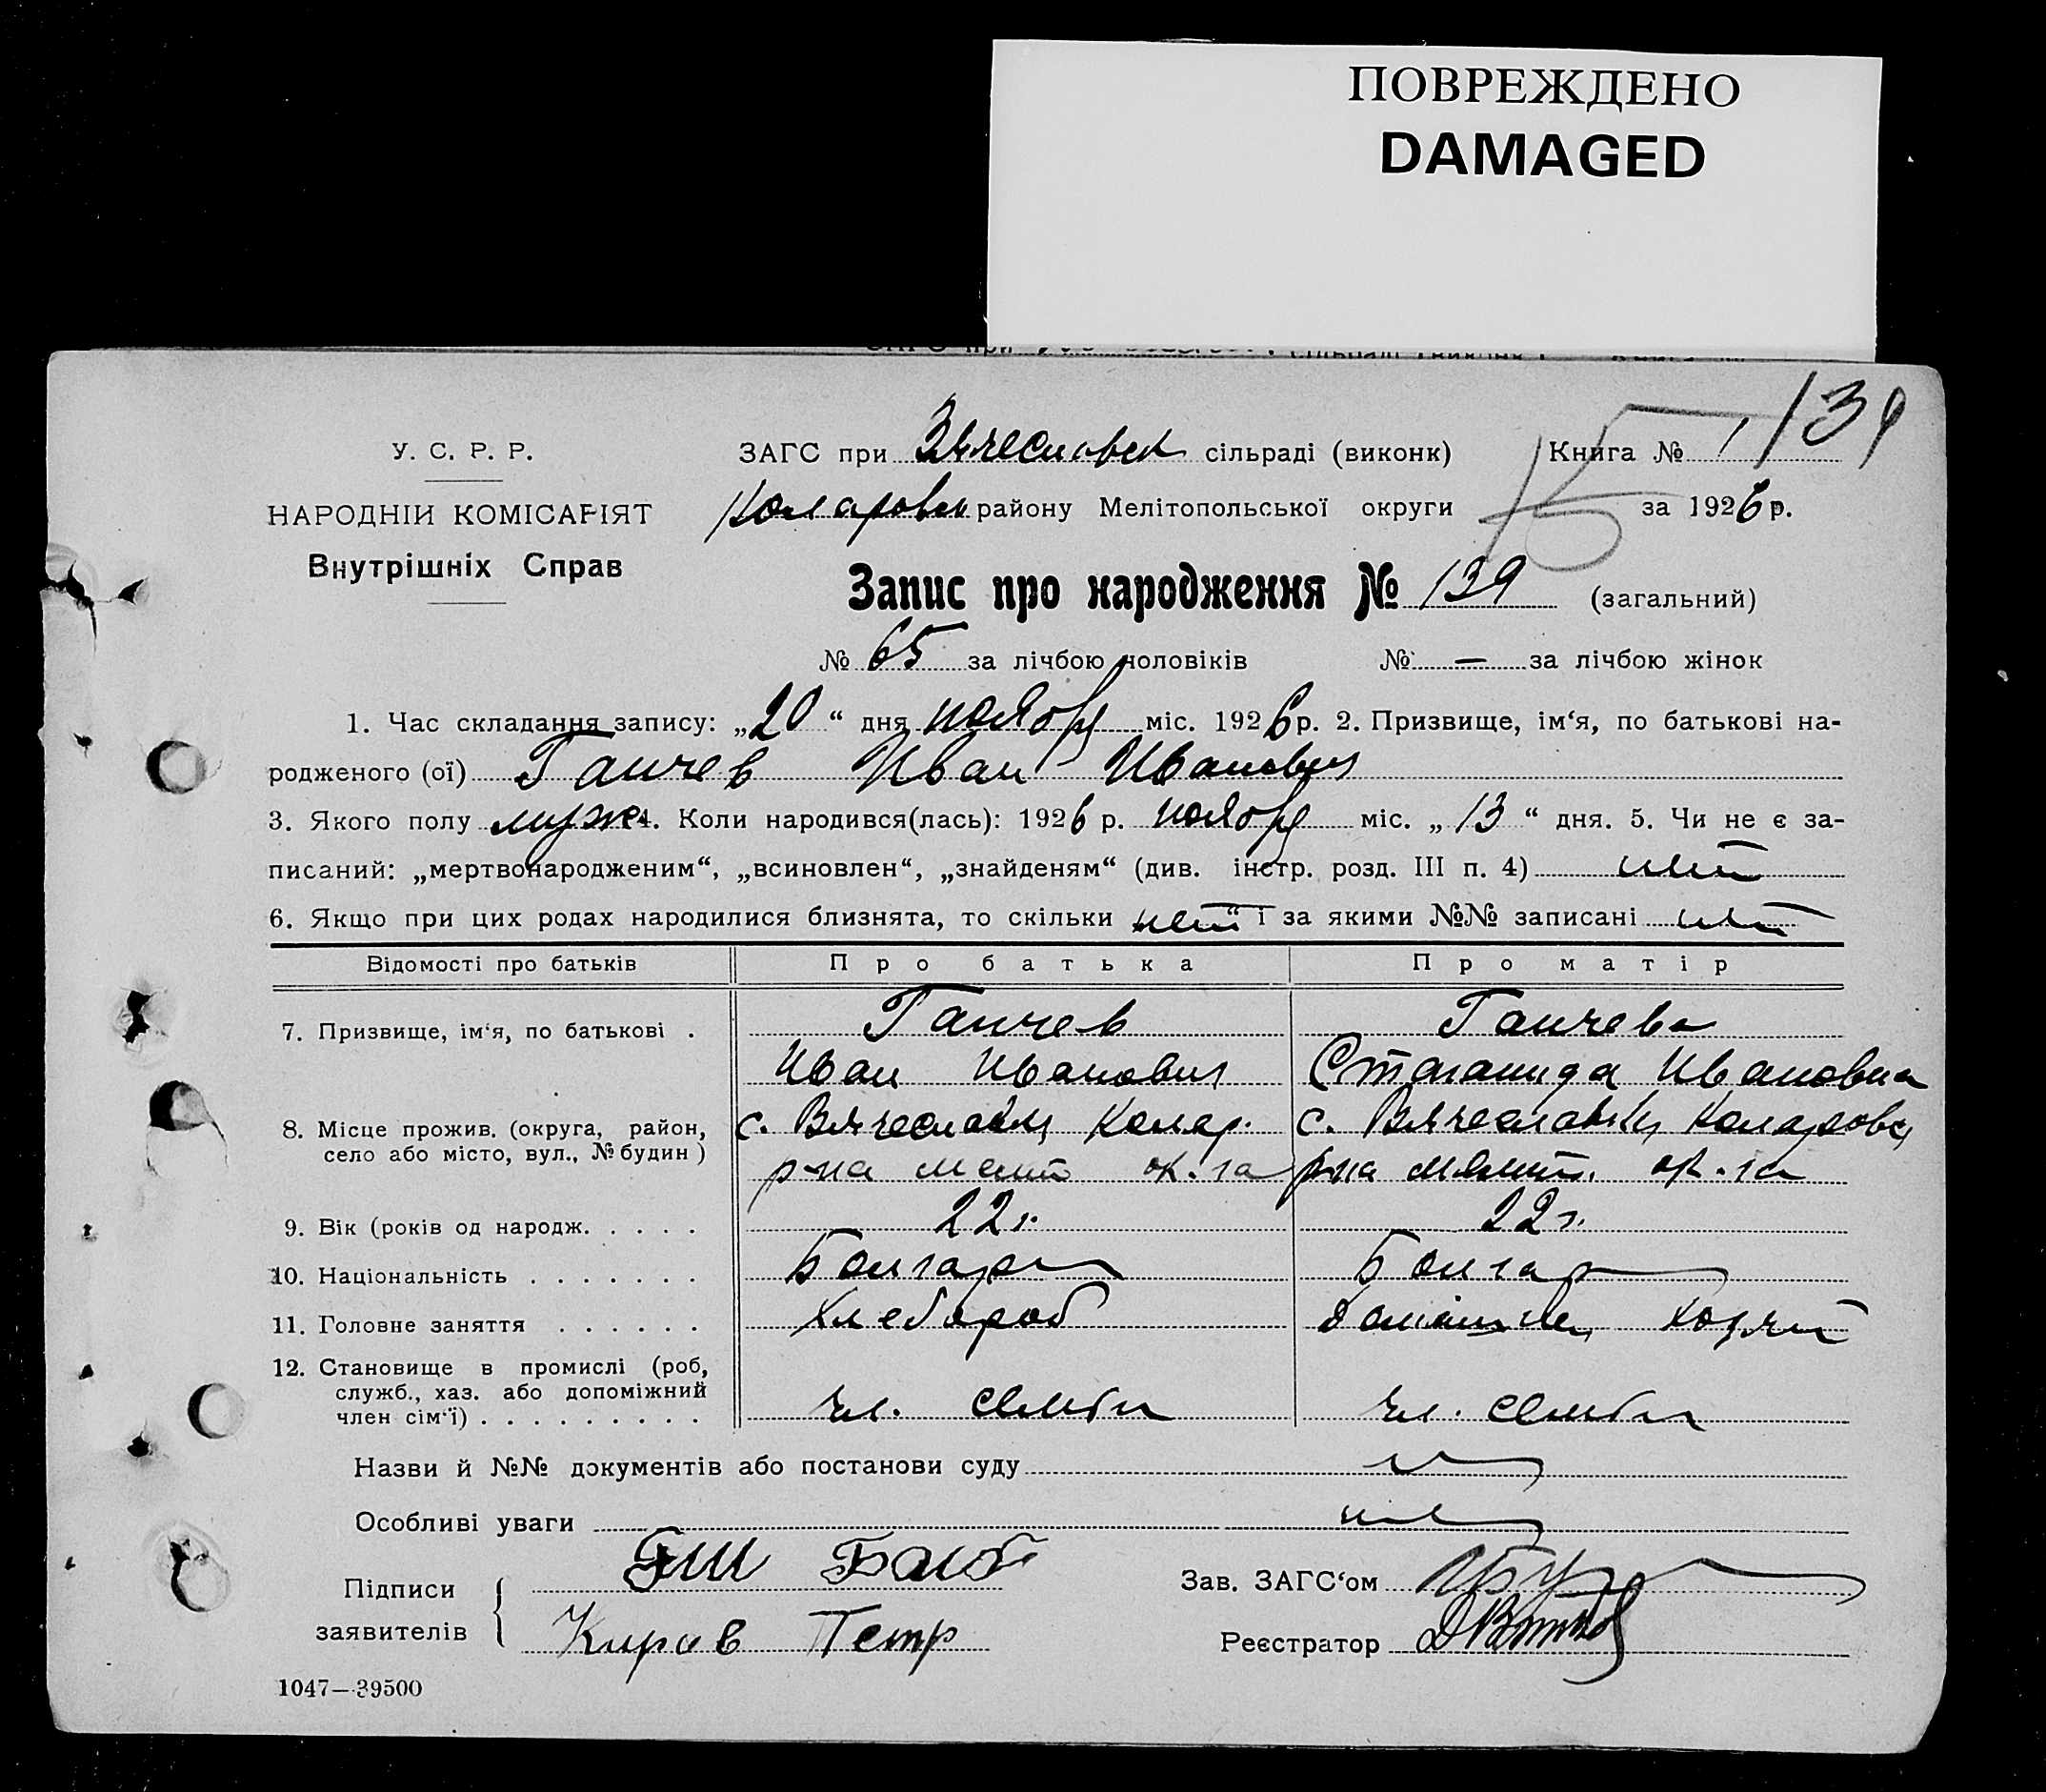 ПОВРЕЖДЕНО
DAMAGED
139
У. С. Р. Р.
ЗАГС при сільраді (виконк) Книга № 1
НАРОДНІЙ КОМІСАРІЯТ
Коларовск району Мелітопольської округи за 1926 р.
15
Внутрішніх Справ
Запис про народження № 139 (загальний)
№ 65 за лічбою чоловіків № — за лічбою жінок
1. Час складання запису: „20“ дня ноября міс. 1926 р. 2. Призвище, ім‘я, по батькові на-
родженого (ої) Ганчев Иван Иванович
3. Якого полу муж 4. Коли народився(лась): 1926 р. ноября міс. „13“ дня. 5. Чи не є за-
писаний: „мертвонародженим“, „всиновлен“, „знайденям“ (див. інстр. розд. III п. 4) нет
6. Якщо при цих родах народилися близнята, то скільки нет і за якими №№ записані нет
Відомості про батьків Про батька Про матір
7. Призвище, ім‘я, по батькові . Ганчев Ганчева
Иван Иванович Ивановна
8. Місце прожив. (округа, район, с. Вячеславки Колар. с. Вячеславки Коларовск
село або місто, вул., № будин) р-на Мелит ок-га р-на Мелит. ок-га
9. Вік (років од народж. . . . . 22 г. 22 г.
10. Національність . . . . . . . Болгарин Болгар
11. Головне заняття . . . . . . Хлебороб
12. Становище в промислі (роб,
служб., хаз. або допоміжний
член сім‘ї) . . . . . . . . . чл. семьи чл. семьи
Назви й №№ документів або постанови суду
Особливі уваги
Підписи Зав. ЗАГС‘ом
заявителів Киров Петр Реєстратор
1047—39500